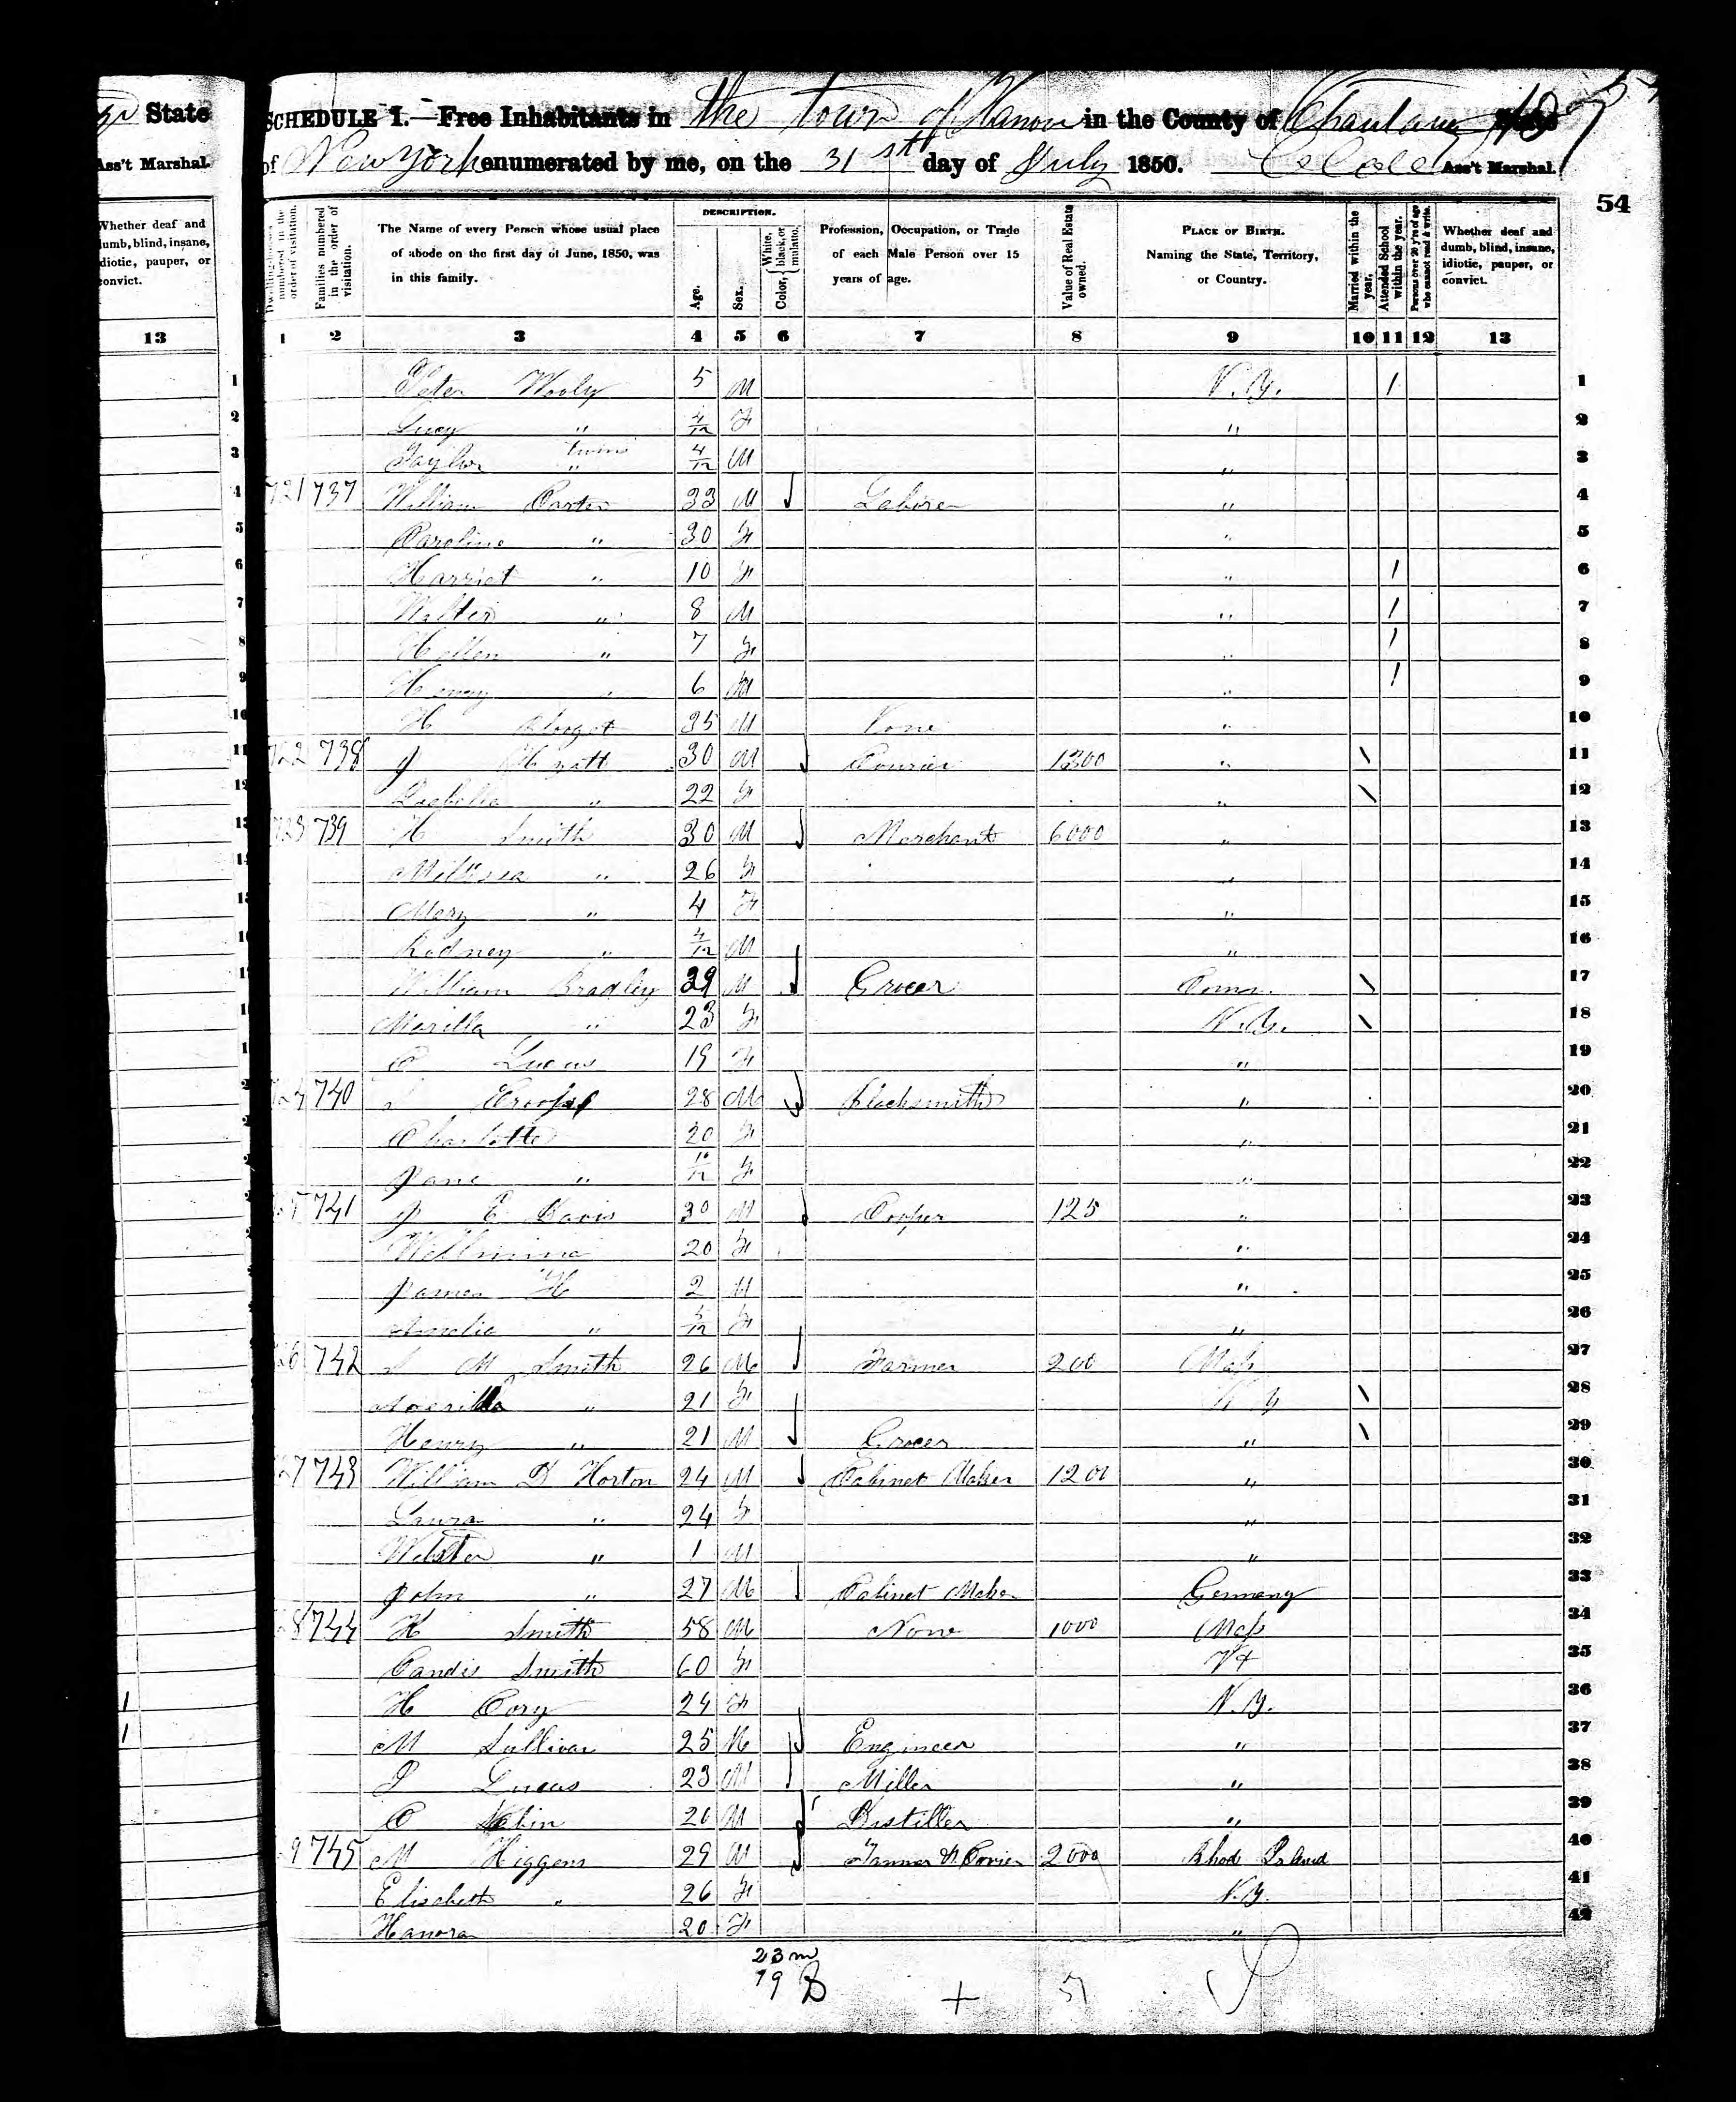 State
Ass't Marshal.
Whether deaf and dumb, blind, insane, idiotic, pauper, or convict.
13
SCHEDULE I.—Free Inhabitants in the town of Hanover in the County of Chautauque State
of New York enumerated by me, on the 31st day of July 1850. Ass't Marshal.
54
Dwelling-houses numbered in the order of visitation.
Families numbered in the order of visitation.
The Name of every Person whose usual place of abode on the first day of June, 1850, was in this family.
DESCRIPTION.
Age.
Sex.
Color, { White, black, or mulatto.
Profession, Occupation, or Trade of each Male Person over 15 years of age.
Value of Real Estate owned.
PLACE OF BIRTH. Naming the State, Territory, or Country.
Married within the year.
Attended School within the year.
Persons over 20 y'rs of age who cannot read & write.
Whether deaf and dumb, blind, insane, idiotic, pauper, or convict.
1 2 3 4 5 6 7 8 9 10 11 12 13
1 Peter Wooly 5 M N.Y. 1 1
2 Lucy " 4/12 F " 2
3 Taylor twins " 4/12 M " 3
4 721 737 William Carter 33 M Laborer " 4
5 Caroline " 30 F " 5
6 Harriet " 10 F " 1 6
7 Walter " 8 M " 1 7
8 Hellen " 7 F " 1 8
9 Henry " 6 M " 1 9
10 H 35 M None " 10
11 722 738 J Hyatt 30 M Courier 1300 " \ 11
12 Isabella " 22 F " \ 12
13 723 739 H Smith 30 M Merchant 6000 " 13
14 Millissa " 26 F " 14
15 Mary " 4 F " 15
16 Rodney " 4/12 M " 16
17 William Bradley 29 M Grocer Conn. \ 17
18 Marilla " 23 F N.Y. \ 18
19 C Lucus 19 F " 19
20 724 740 S 28 M Blacksmith " 20
21 Charlotte 20 F " 21
22 Jane " 10/12 F " 22
23 741 J E Davis 30 M Cooper 125 " 23
24 20 F " 24
25 James H 2 M " 25
26 Amelia " 5/12 F " 26
27 742 S M Smith 26 M Farmer 200 Mass 27
28 " 21 F N Y \ 28
29 Henry " 21 M Grocer " \ 29
30 743 William D Horton 24 M Cabinet Maker 1200 " 30
31 Laura " 24 F " 31
32 Webster " 1 M " 32
33 John " 27 M Cabinet Maker Germany 33
34 744 H Smith 58 M None 1000 Mass 34
35 Candis Smith 60 F Vt 35
36 H Cory 24 F N.Y. 36
37 M Sullivan 25 M Engineer " 37
38 J Lucus 23 M Miller " 38
39 O 26 M Distiller " 39
40 745 M Higgens 29 M Tanner & Corrier 2000 Rhod Island 40
41 Elisabeth " 26 F N.Y. 41
42 Hanora 20 F " 42
23 m
19